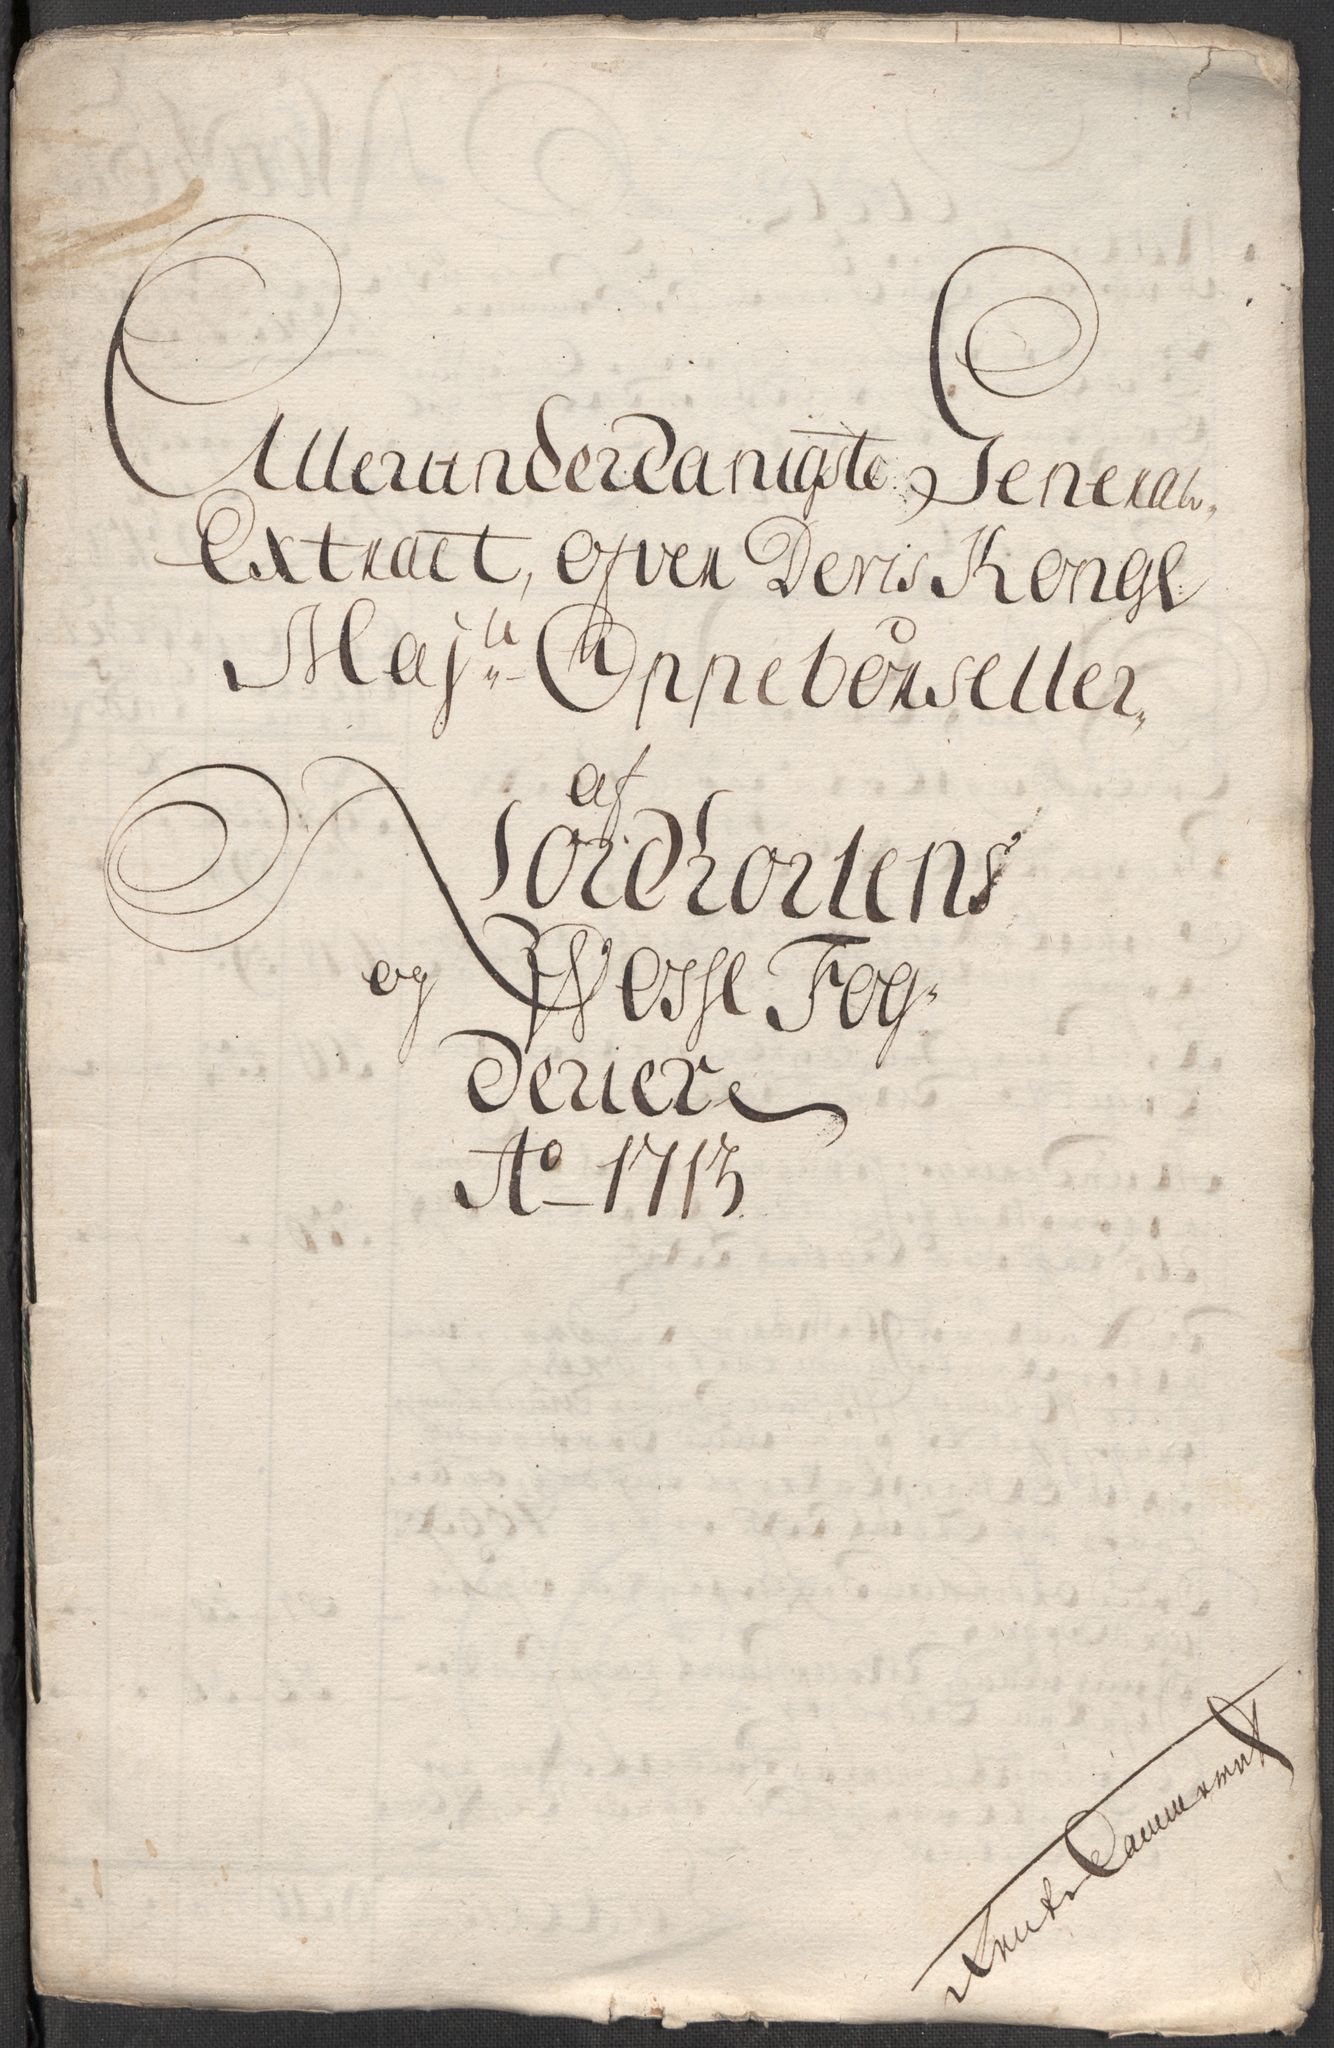 Allerunderdanigste General-
Extract, ofver Deris Kongl
Maj:ts Oppebörseller,
af
Nordhortens
og Wosse Fog-
derier
Ao 1713
Rente Cammeret